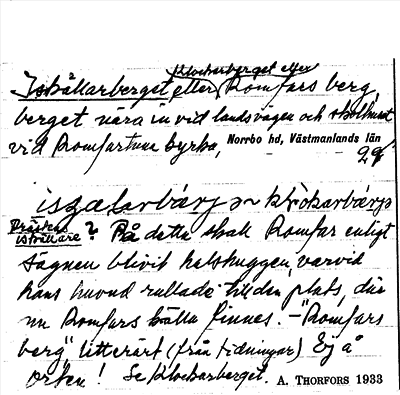 Klockarberget eller
Iskällarberget eller Romfars berg,
berget nära in vid landsvägen och skolhuset
vid Romfartuna kyrka, Norrbo hd, Västmanlands län
iskalarbærj klokarbærjə
iskällare? På detta skall Romfar enligt
sägnen blivit halshuggen, varvid
hans huvud rullade till den plats, där
nu Romfars källa finnes. - "Romfars
berg" litterärt (från tidningar) Ej å
orten! Se Klockarberget. A. THORFORS 1933